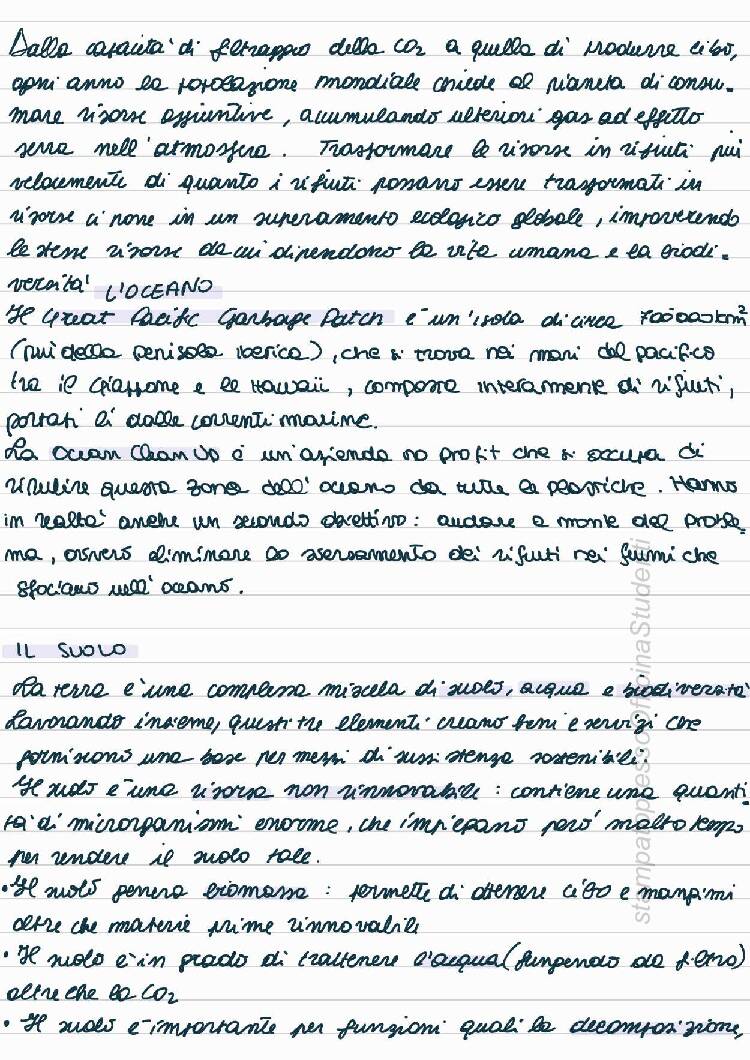 Dalla capacità di filtraggio della CO2 a quella di produrre cibo,
ogni anno la popolazione mondiale chiede al pianeta di consu-
mare risorse aggiuntive, accumulando ulteriori gas ad effetto
serra nell'atmosfera. Trasformare le risorse in rifiuti più
velocemente di quanto i rifiuti possano essere trasformati in
risorse ci pone in un superamento ecologico globale, impoverendo
le stesse risorse da cui dipendono la vita umana e la biodi-
versità L'OCEANO
Il Great Pacific Garbage Patch è un'isola di circa 700000km²
(più della penisola iberica), che si trova nei mari del pacifico
tra il Giappone e le Hawaii, composta interamente di rifiuti,
portati lì dalle correnti marine.
La Ocean CleanUp è un'azienda no profit che si occupa di
ripulire questa zona dell'oceano da tutte le plastiche. Hanno
in realtà anche un secondo obiettivo: andare a monte del proble-
ma, ovvero eliminare lo sversamento dei rifiuti nei fiumi che
sfociano nell'oceano.
IL SUOLO
La terra è una complessa miscela di suolo, acqua e biodiversità
Lavorando insieme, questi tre elementi creano beni e servizi che
forniscono una base per mezzi di sussistenza sostenibili.
Il suolo è una risorsa non rinnovabile: contiene una quanti-
tà di microrganismi enorme, che impiegano però molto tempo
per rendere il suolo tale.
• Il suolo genera biomassa: permette di ottenere cibo e mangimi
oltre che materie prime rinnovabili
• Il suolo è in grado di trattenere l'acqua (fungendo da filtro)
oltre che la CO2
• Il suolo è importante per funzioni quali la decomposizione,
stampato presso OfficinaStudenti